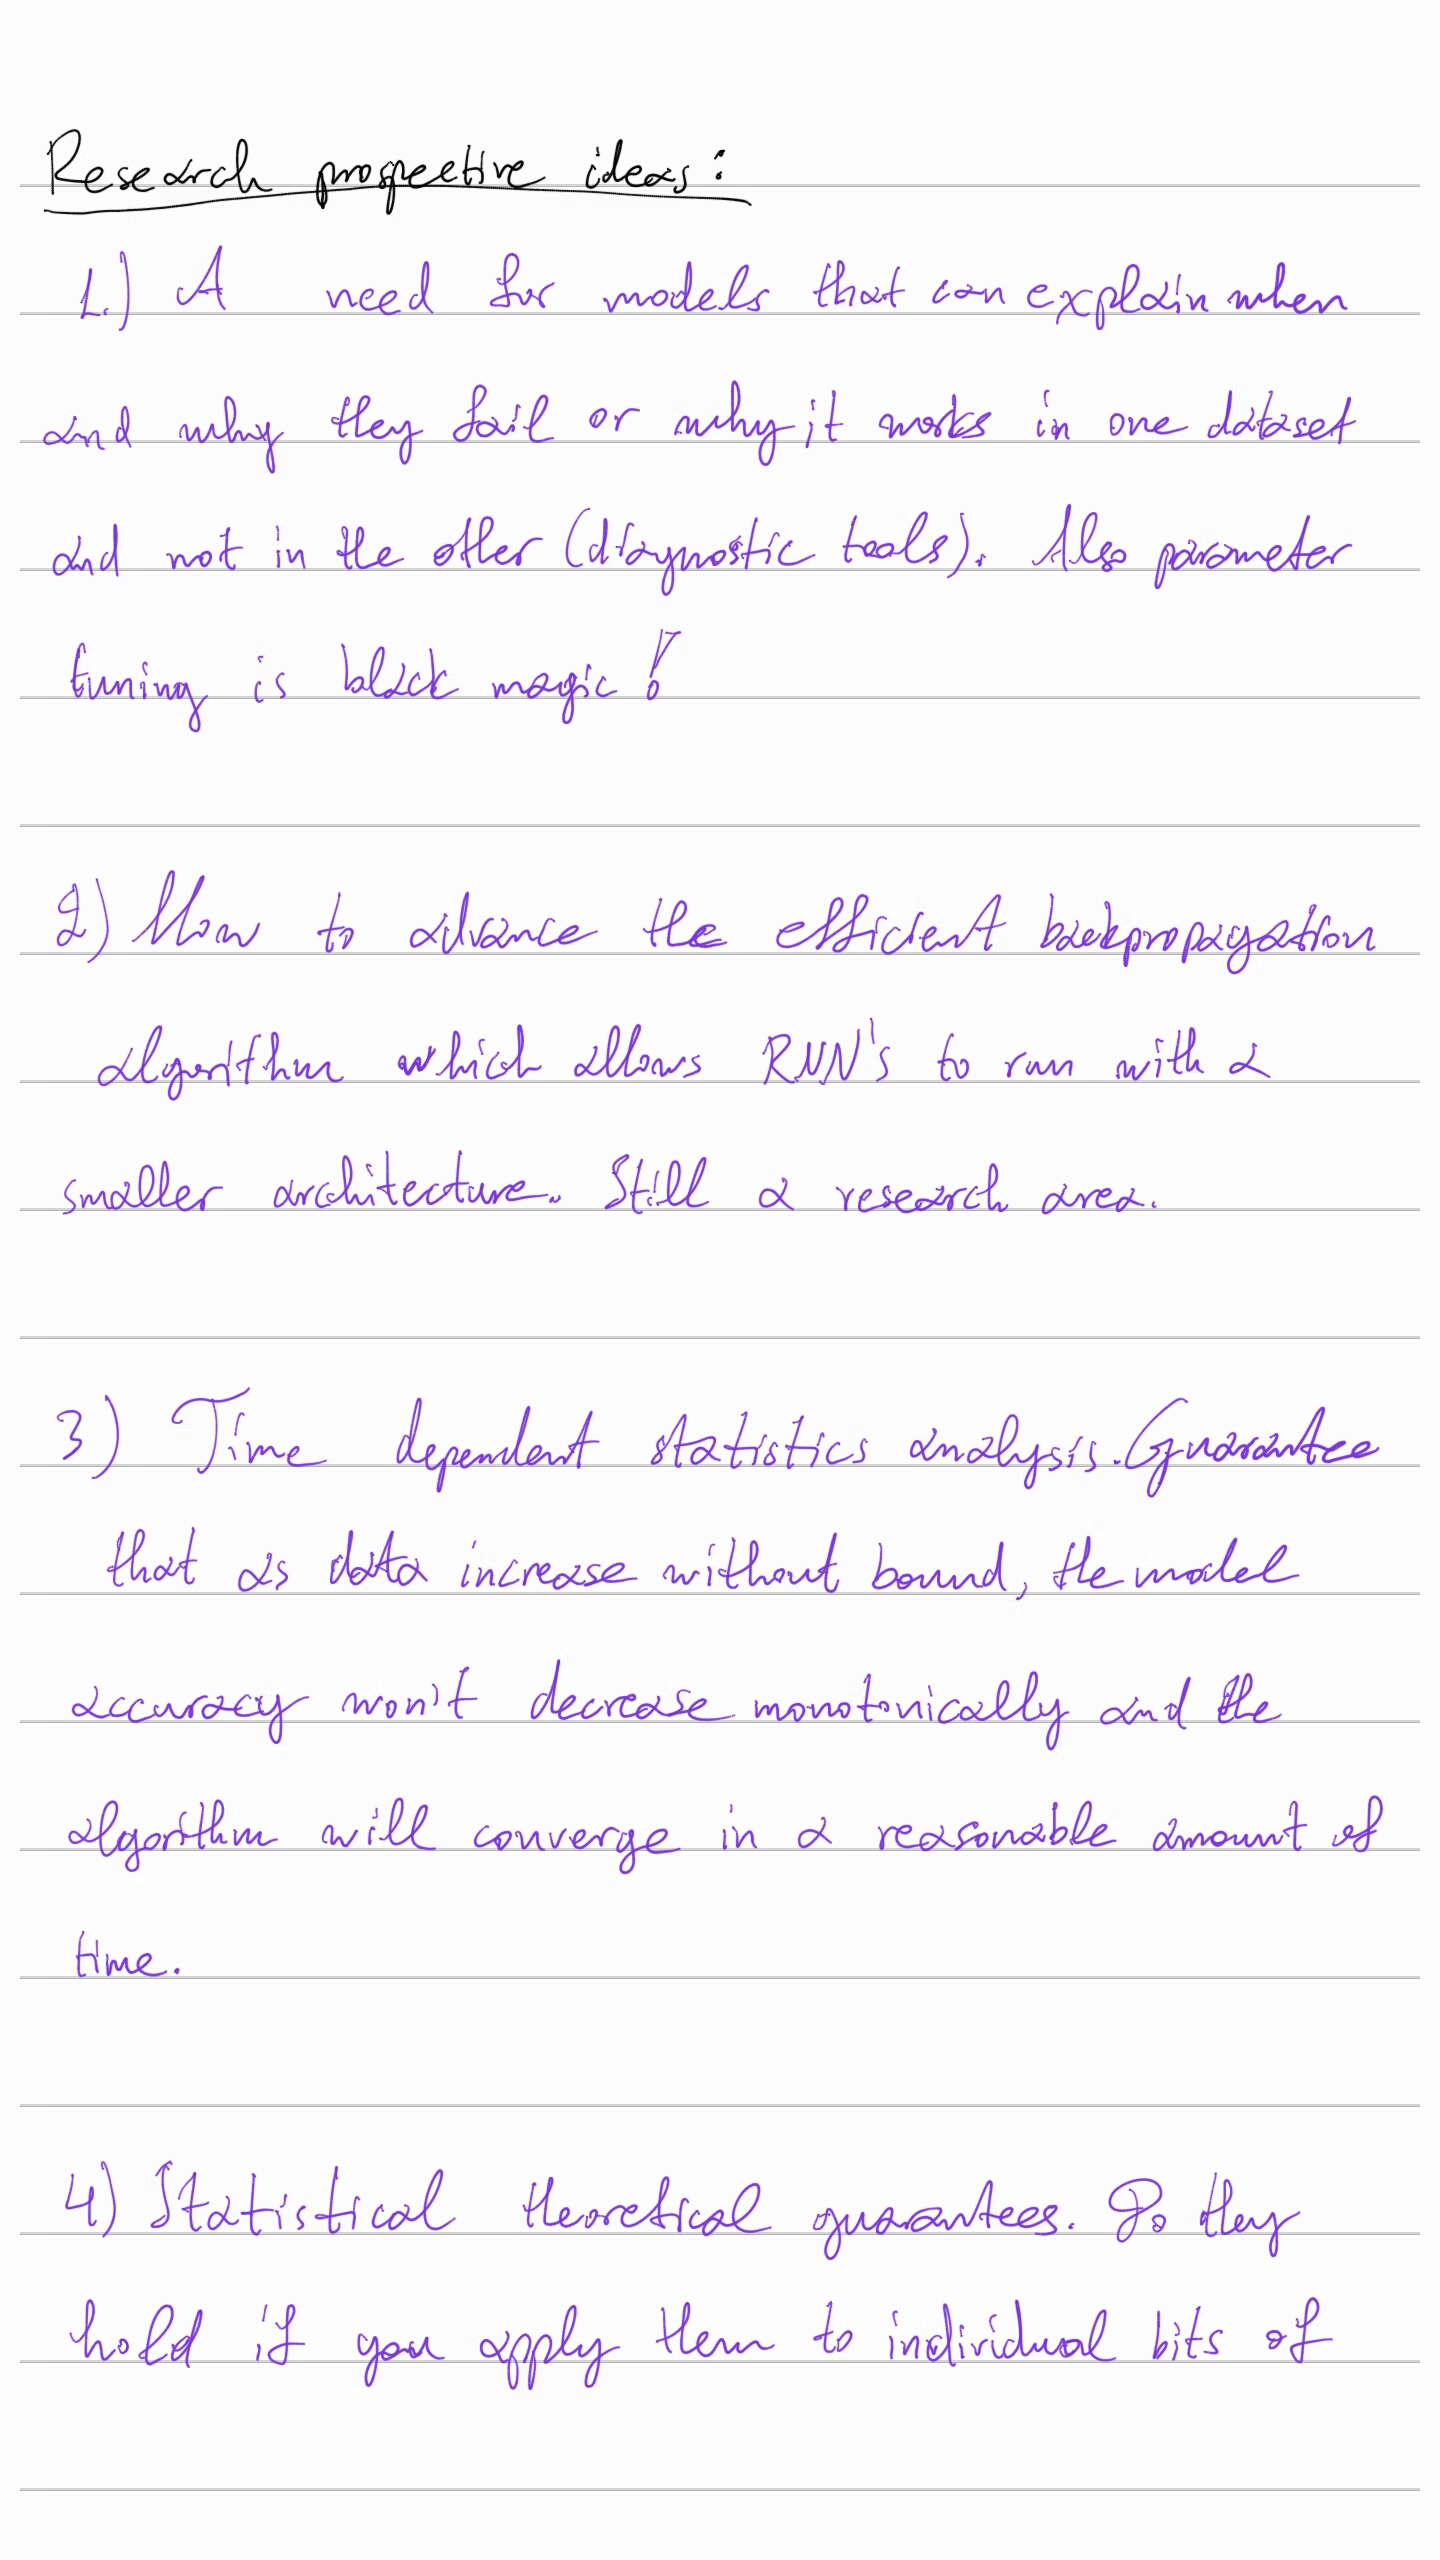 Research prospective ideas:
1.) A need for models that can explain when
and why they fail or why it works in one dataset
and not in the other (diagnostic tools). Also parameter
tuning is black magic!
2) How to advance the efficient backpropagation
algorithm which allows RNN's to run with a
smaller architecture. Still a research area.
3) Time dependent statistics analysis. Guarantee
that as data increase without bound, the model
accuracy won't decrease monotonically and the
algorithm will converge in a reasonable amount of
time.
4) Statistical theoretical guarantees. Do they
hold if you apply them to individual bits of